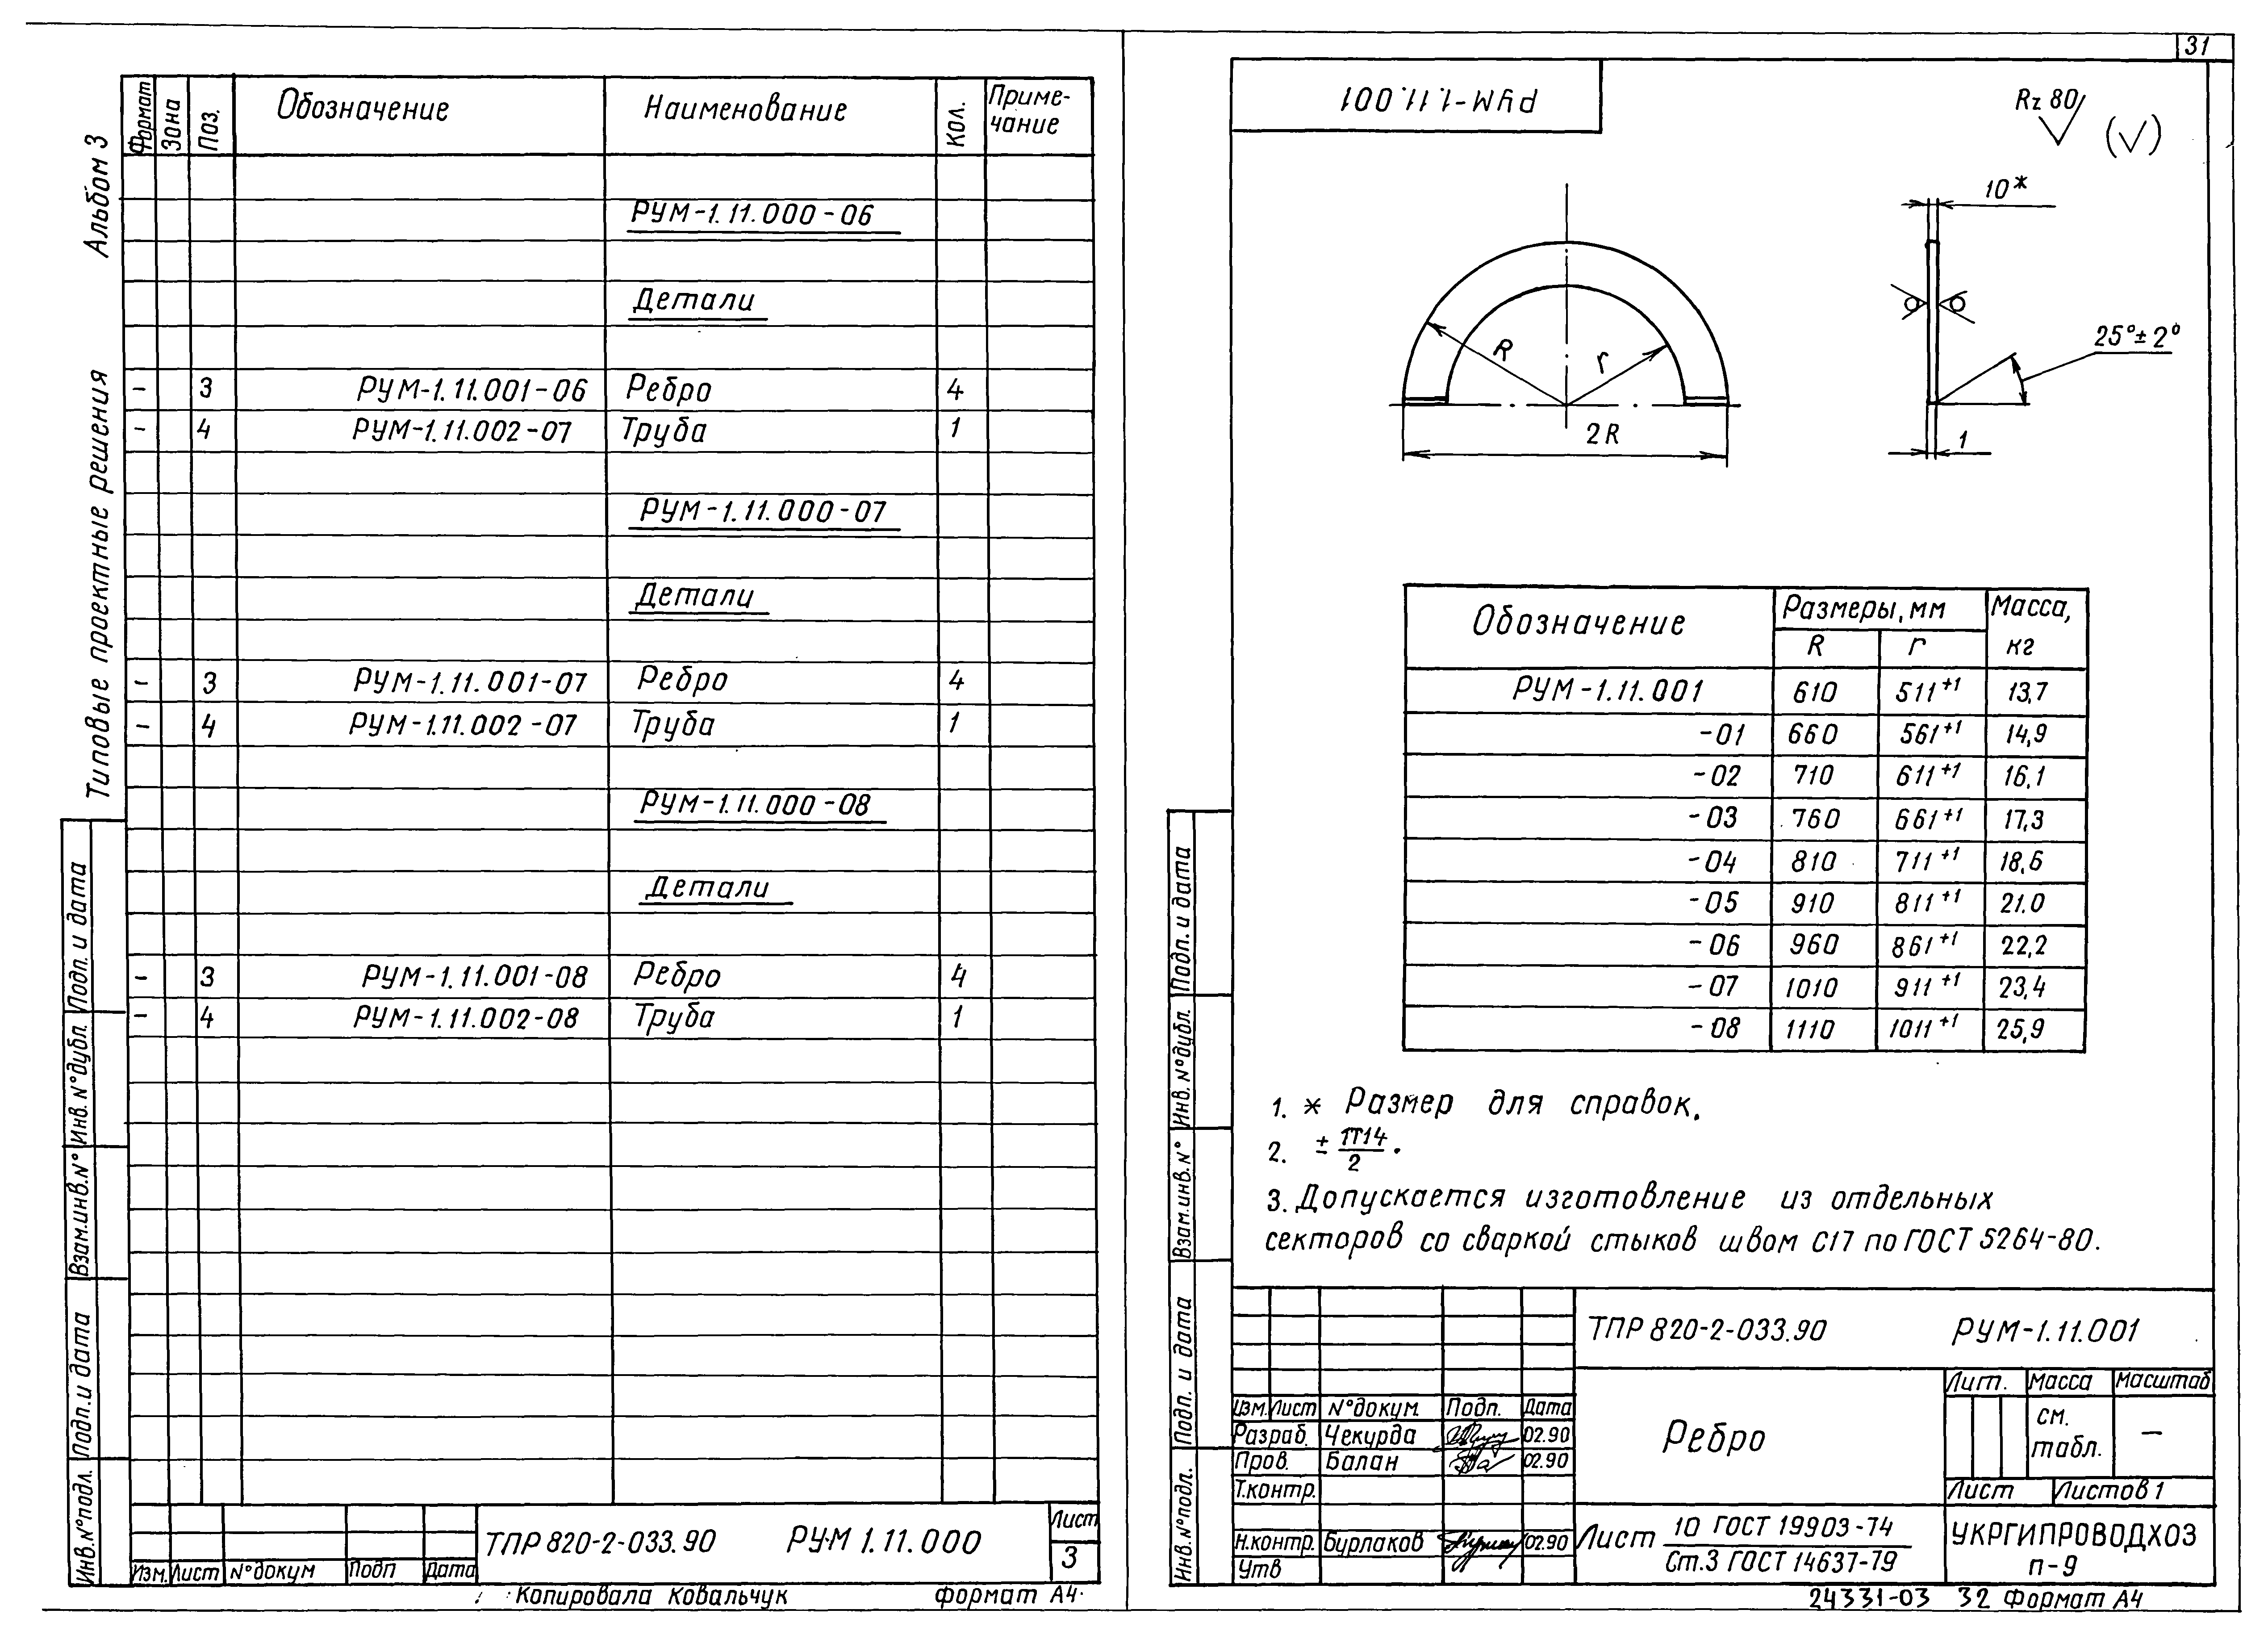 31
Альбом 3
Типовые проектные решения
Формат Зона Поз. Обозначение Наименование Кол. Приме-
чание
РУМ-1.11.000-06
Детали
- 3 РУМ-1.11.001-06 Ребро 4
- 4 РУМ-1.11.002-07 Труба 1
РУМ-1.11.000-07
Детали
- 3 РУМ-1.11.001-07 Ребро 4
- 4 РУМ-1.11.002-07 Труба 1
РУМ-1.11.000-08
Детали
- 3 РУМ-1.11.001-08 Ребро 4
- 4 РУМ-1.11.002-08 Труба 1
Подп. и дата
Инв. №дубл.
Взам.инв.№
Подп. и дата
Инв.№подл.
Изм. Лист №докум Подп Дата
ТПР 820-2-033.90 РУМ 1.11.000
Лист
3
Копировала Ковальчук формат А4
РУМ-1.11.001
Rz 80 (√)
10*
25°±2°
R r
2R
1
Обозначение Размеры, мм Масса,
R r кг
РУМ-1.11.001 610 511+1 13,7
-01 660 561+1 14,9
-02 710 611+1 16,1
-03 760 661+1 17,3
-04 810 711+1 18,6
-05 910 811+1 21.0
-06 960 861+1 22,2
-07 1010 911+1 23,4
-08 1110 1011+1 25,9
1. * Размер для справок.
2. ± IT14/2.
3. Допускается изготовление из отдельных
секторов со сваркой стыков швом С17 по ГОСТ 5264-80.
Подп. и дата
Инв. №дубл.
Взам.инв.№
Подп. и дата
Инв.№подл.
ТПР 820-2-033.90 РУМ-1.11.001
Изм. Лист №докум Подп. Дата
Разраб. Чекурда 02.90
Пров. Балан 02.90
Т.контр.
Н.контр. Бурлаков 02.90
Утв
Ребро
Лит. Масса Масштаб
см.
табл. -
Лист Листов 1
Лист 10 ГОСТ 19903-74
Ст.3 ГОСТ 14637-79
УКРГИПРОВОДХОЗ
п-9
24331-03 32 Формат А4